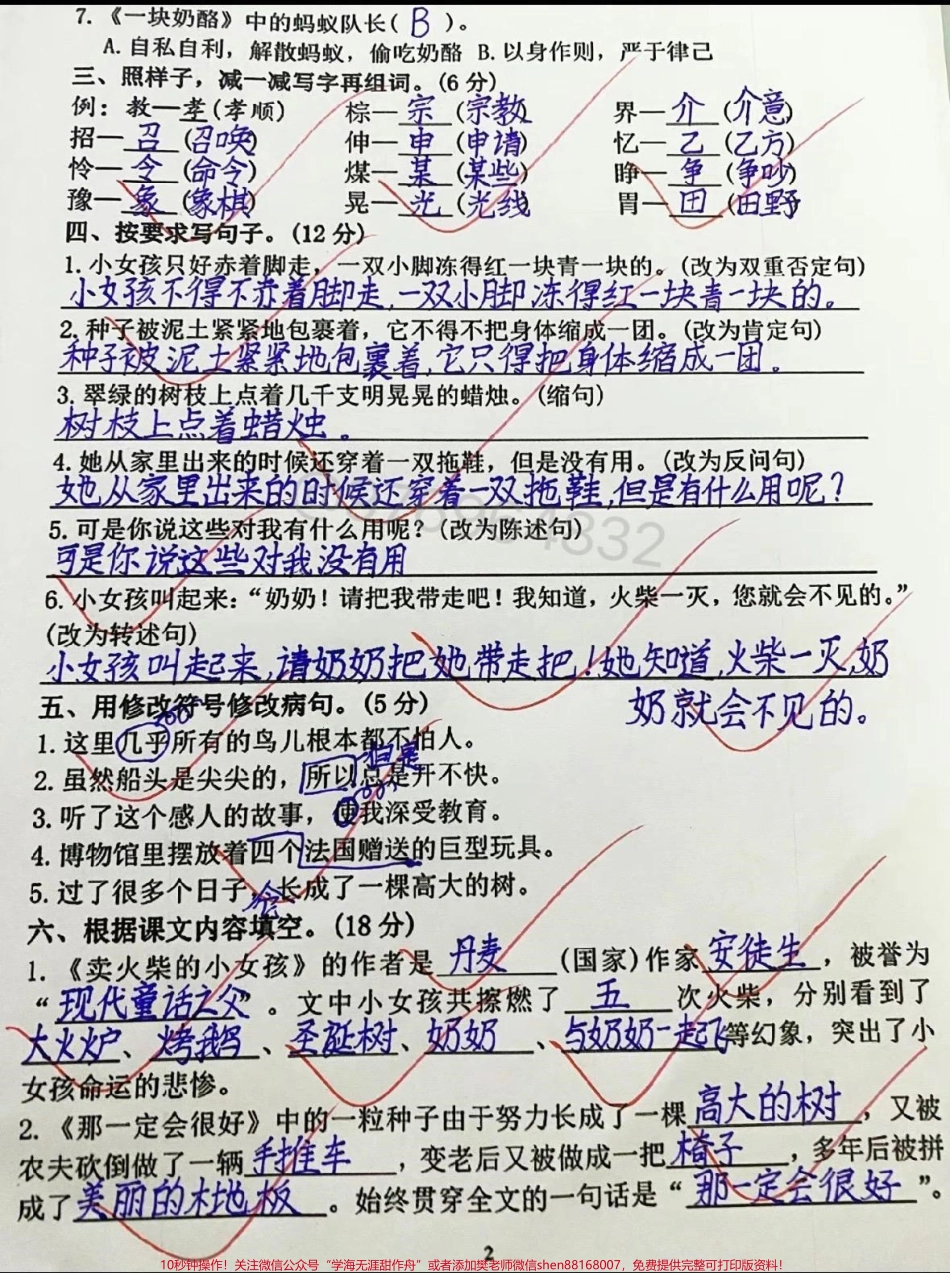 7.《一块奶酪》中的蚂蚁队长( B )。
A. 自私自利，解散蚂蚁，偷吃奶酪 B. 以身作则，严于律己
三、照样子，减一减写字再组词。(6分)
例：教—孝(孝顺) 棕—宗(宗教) 界—介(介意)
招—召(召唤) 伸—申(申请) 忆—乙(乙方)
怜—令(命令) 煤—某(某些) 睁—争(争吵)
豫—象(象棋) 晃—光(光线) 胃—田(田野)
四、按要求写句子。(12分)
1. 小女孩只好赤着脚走，一双小脚冻得红一块青一块的。(改为双重否定句)
小女孩不得不赤着脚走，一双小脚冻得红一块青一块的。
2. 种子被泥土紧紧地包裹着，它不得不把身体缩成一团。(改为肯定句)
种子被泥土紧紧地包裹着，它只得把身体缩成一团。
3. 翠绿的树枝上点着几千支明晃晃的蜡烛。(缩句)
树枝上点着蜡烛。
4. 她从家里出来的时候还穿着一双拖鞋，但是没有用。(改为反问句)
她从家里出来的时候还穿着一双拖鞋，但是有什么用呢？
5. 可是你说这些对我有什么用呢？(改为陈述句)
可是你说这些对我没有用
6. 小女孩叫起来：“奶奶！请把我带走吧！我知道，火柴一灭，您就会不见的。”
(改为转述句)
小女孩叫起来，请奶奶把她带走把！她知道，火柴一灭，奶
奶就会不见的。
五、用修改符号修改病句。(5分)
1. 这里几乎所有的鸟儿根本都不怕人。
但是
2. 虽然船头是尖尖的，所以总是开不快。
3. 听了这个感人的故事，使我深受教育。
4. 博物馆里摆放着四个法国赠送的巨型玩具。
5. 过了很多个日子，长成了一棵高大的树。
六、根据课文内容填空。(18分)
1.《卖火柴的小女孩》的作者是丹麦(国家)作家安徒生，被誉为
“现代童话之父”。文中小女孩共擦燃了五次火柴，分别看到了
大火炉、烤鹅、圣诞树、奶奶、与奶奶一起飞等幻象，突出了小
女孩命运的悲惨。
2.《那一定会很好》中的一粒种子由于努力长成了一棵高大的树，又被
农夫砍倒做了一辆手推车，变老后又被做成一把椅子，多年后被拼
成了美丽的木地板。始终贯穿全文的一句话是“那一定会很好”。
2
10秒钟操作！关注微信公众号“学海无涯甜作舟”或者添加樊老师微信shen88168007，免费提供完整可打印版资料！